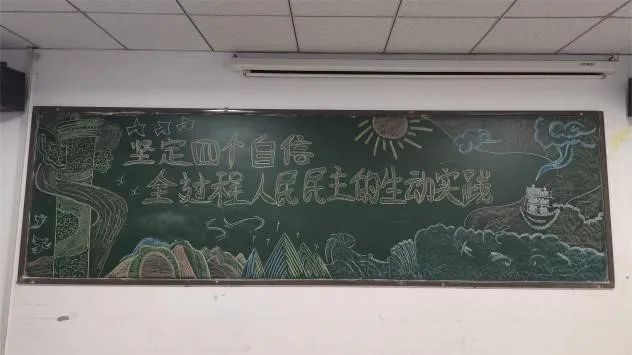 坚定四个自信
全过程人民民主的生动实践